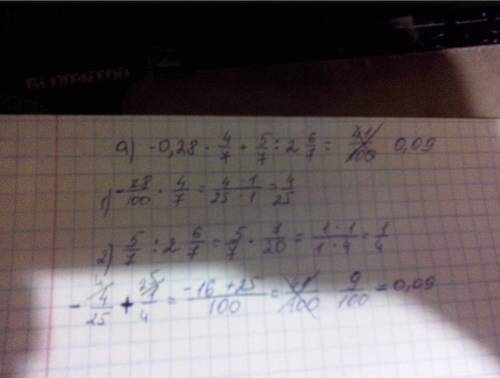 а) -0,28 · 4/7 + 5/7 : 2 6/7 = 41/100 0,09
1) -28/100 · 4/7 = 4 · 1/25 · 1 = 4/25
2) 5/7 : 2 6/7 = 5/7 · 7/20 = 1 · 1/1 · 4 = 1/4
- 4/25 + 1/4 = -16 + 25/100 = 41/100 9/100 = 0,09